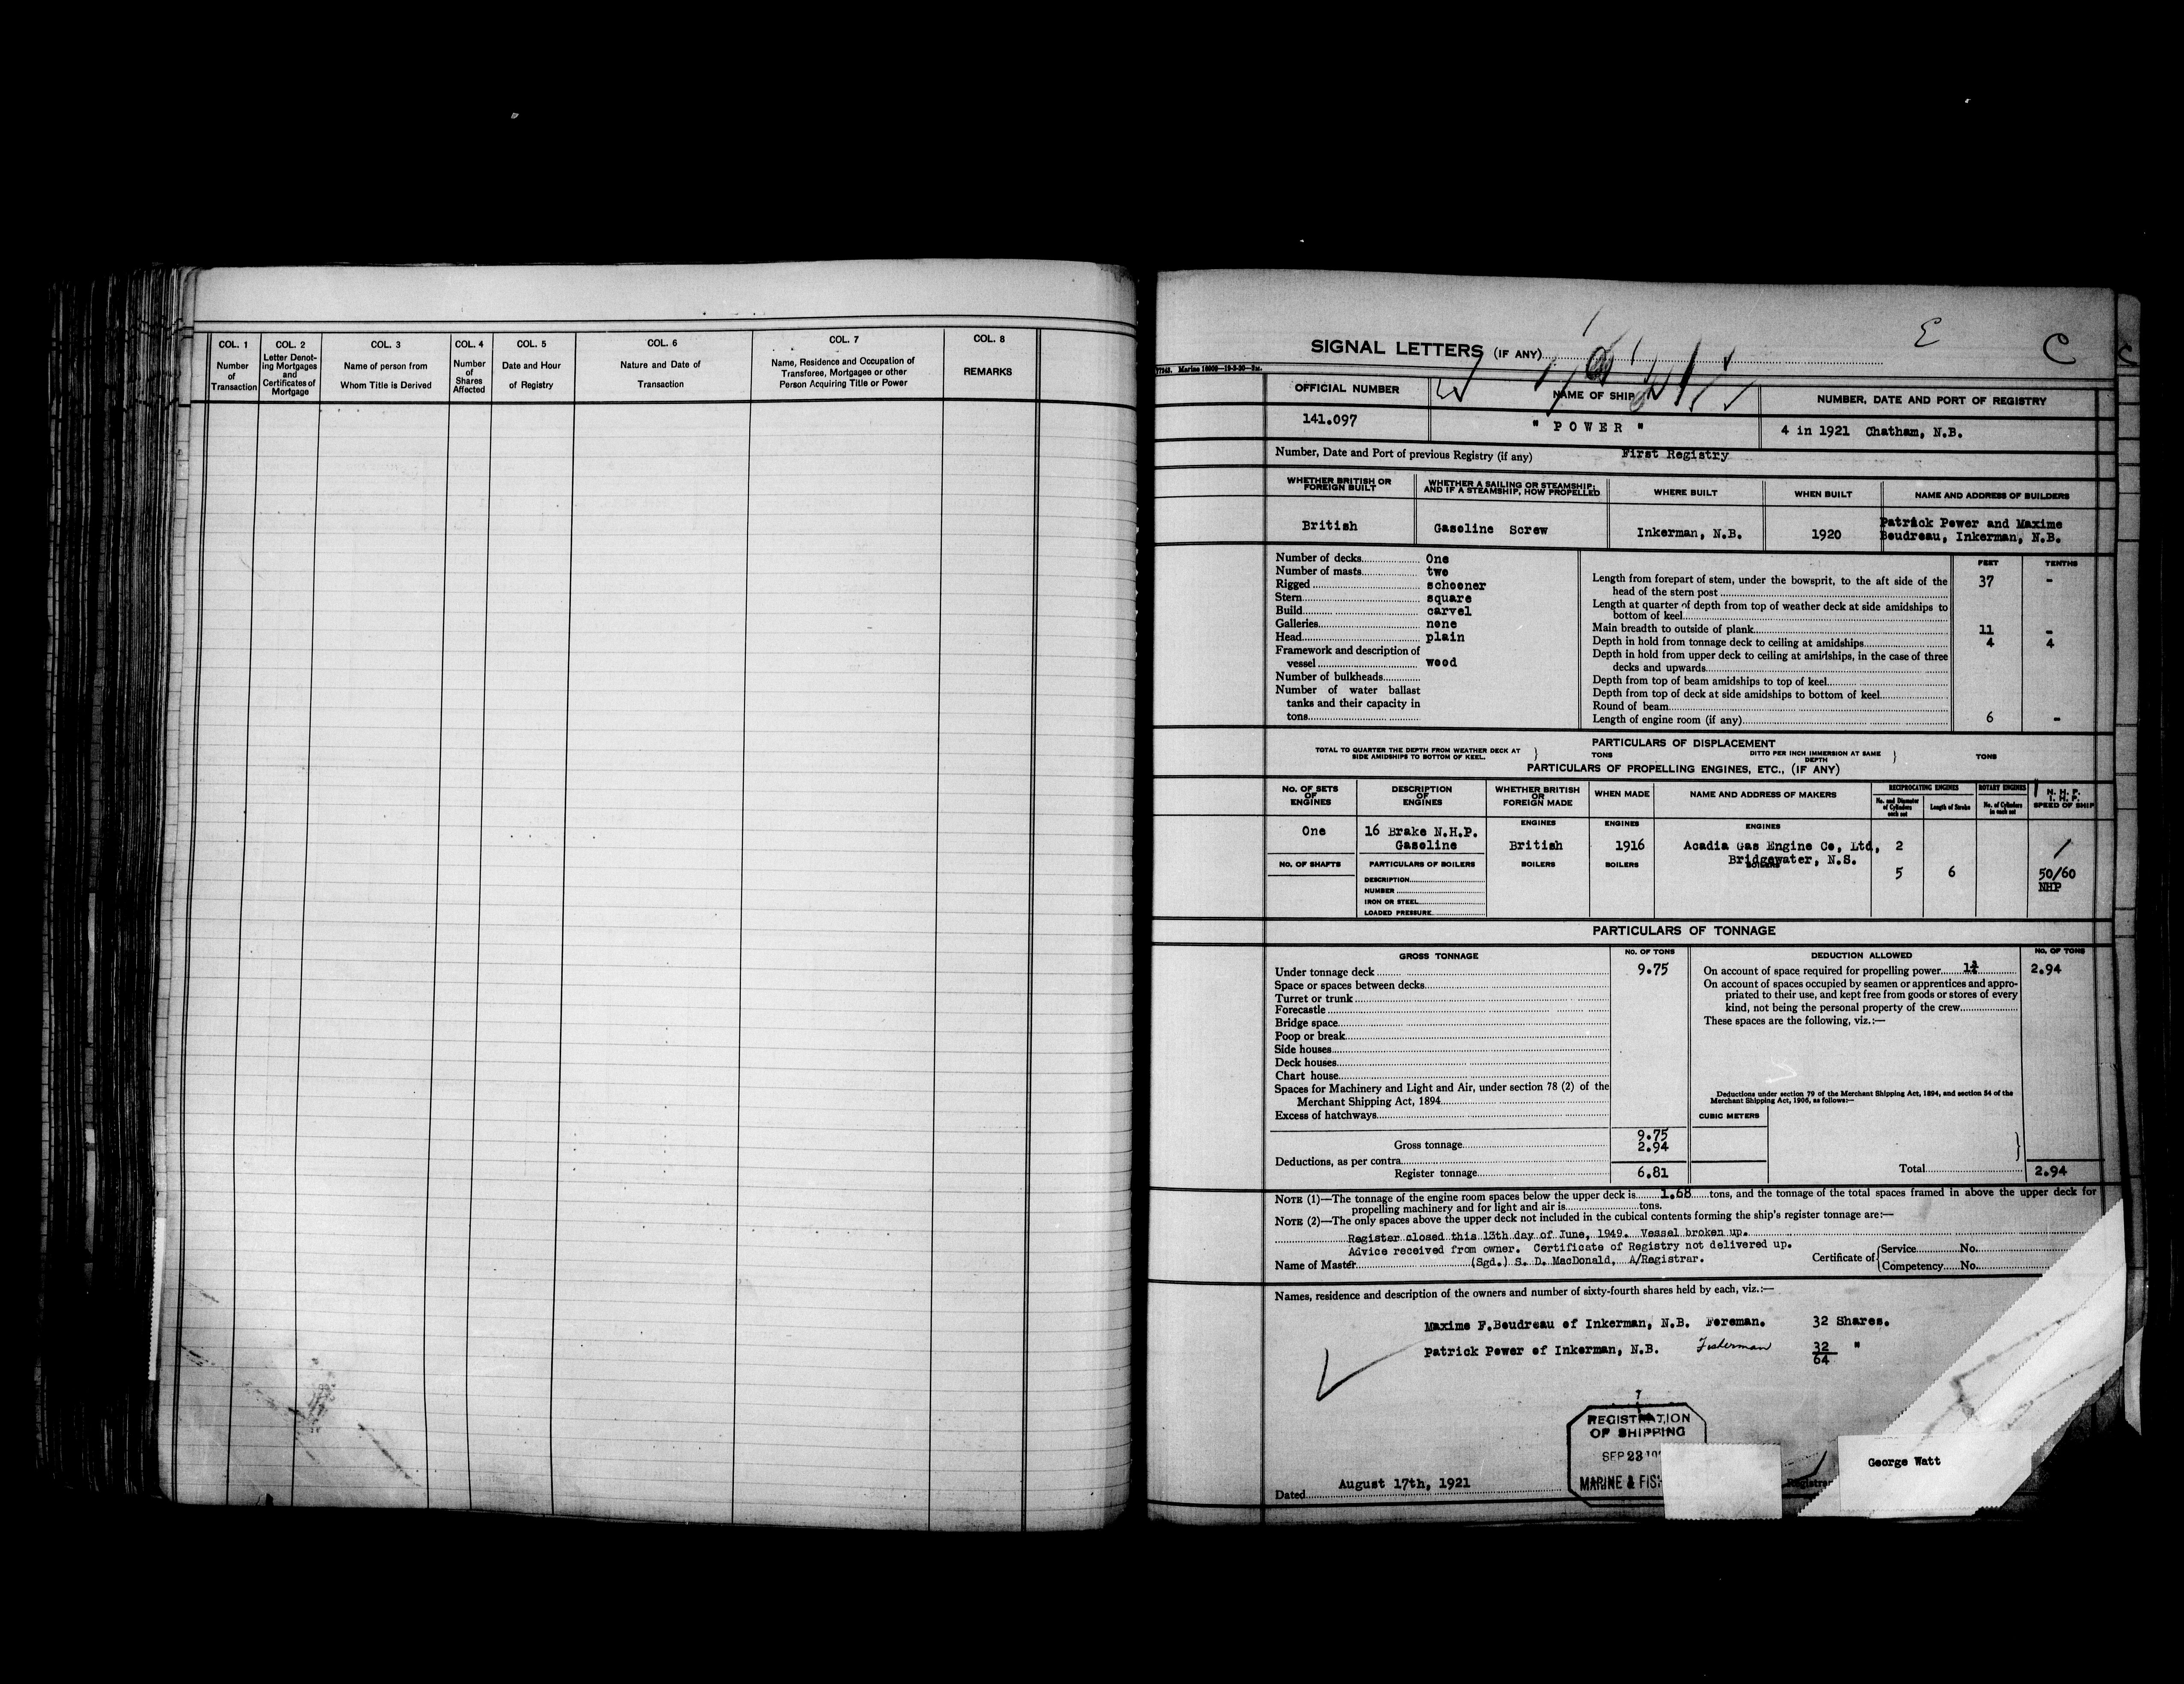 COL. 1
Number
of
Transaction
COL. 2
Letter Denot-
ing Mortgages
and
Certificates of
Mortgage
COL. 3
Name of person from
Whom Title is Derived
COL. 4
Number
of
Shares
Affected
COL. 5
Date and Hour
of Registry
COL. 6
Nature and Date of
Transaction
COL. 7
Name, Residence and Occupation of
Transferee, Mortgagee or other
Person Acquiring Title or Power
COL. 8
REMARKS
E
C
SIGNAL LETTERS (IF ANY)
OFFICIAL NUMBER
NAME OF SHIP
NUMBER, DATE AND PORT OF REGISTRY
141.097
" POWER "
4 in 1921 Chatham, N.B.
Number, Date and Port of previous Registry (if any) First Registry
WHETHER BRITISH OR
FOREIGN BUILT
WHETHER A SAILING OR STEAMSHIP;
AND IF A STEAMSHIP, HOW PROPELLED
WHERE BUILT
WHEN BUILT
NAME AND ADDRESS OF BUILDERS
British
Gasoline Screw
Inkerman, N.B.
1920
Patrick Power and Maxime
Boudreau, Inkerman, N.B.
Number of decks One
Number of masts two
Rigged schooner
Stern square
Build carvel
Galleries none
Head plain
Framework and description of
vessel wood
Number of bulkheads
Number of water ballast
tanks and their capacity in
tons
FEET TENTHS
Length from forepart of stem, under the bowsprit, to the aft side of the
head of the stern post 37 -
Length at quarter of depth from top of weather deck at side amidships to
bottom of keel
Main breadth to outside of plank 11 -
Depth in hold from tonnage deck to ceiling at amidships 4 4
Depth in hold from upper deck to ceiling at amidships, in the case of three
decks and upwards
Depth from top of beam amidships to top of keel
Depth from top of deck at side amidships to bottom of keel
Round of beam
Length of engine room (if any) 6 -
PARTICULARS OF DISPLACEMENT
TOTAL TO QUARTER THE DEPTH FROM WEATHER DECK AT
SIDE AMIDSHIPS TO BOTTOM OF KEEL.
TONS
DITTO PER INCH IMMERSION AT SAME
DEPTH
TONS
PARTICULARS OF PROPELLING ENGINES, ETC., (IF ANY)
No. OF SETS
OF
ENGINES
DESCRIPTION
OF
ENGINES
WHETHER BRITISH
OR
FOREIGN MADE
WHEN MADE
NAME AND ADDRESS OF MAKERS
RECIPROCATING ENGINES
No. and Diameter
of Cylinders
each set
Length of Stroke
ROTARY ENGINES
No. of Cylinders
in each set
N. H. P.
I. H. P.
SPEED OF SHIP
ENGINES
ENGINES
ENGINES
One
16 Brake N.H.P.
Gasoline
British
1916
Acadia Gas Engine Co, Ltd,
Bridgewater, N.S.
2
5
6
50/60
NHP
NO. OF SHAFTS
PARTICULARS OF BOILERS
BOILERS
BOILERS
BOILERS
DESCRIPTION
NUMBER
IRON OR STEEL
LOADED PRESSURE
PARTICULARS OF TONNAGE
GROSS TONNAGE
NO. OF TONS
Under tonnage deck 9.75
Space or spaces between decks
Turret or trunk
Forecastle
Bridge space
Poop or break
Side houses
Deck houses
Chart house
Spaces for Machinery and Light and Air, under section 78 (2) of the
Merchant Shipping Act, 1894
Excess of hatchways
9.75
Gross tonnage 2.94
Deductions, as per contra
Register tonnage 6.81
DEDUCTION ALLOWED
NO. OF TONS
On account of space required for propelling power 1¾ 2.94
On account of spaces occupied by seamen or apprentices and appro-
priated to their use, and kept free from goods or stores of every
kind, not being the personal property of the crew
These spaces are the following, viz.:—
Deductions under section 79 of the Merchant Shipping Act, 1894, and section 54 of the
Merchant Shipping Act, 1906, as follows:—
CUBIC METERS
Total 2.94
NOTE (1)—The tonnage of the engine room spaces below the upper deck is 1.68 tons, and the tonnage of the total spaces framed in above the upper deck for
propelling machinery and for light and air is tons.
NOTE (2)—The only spaces above the upper deck not included in the cubical contents forming the ship's register tonnage are:—
Register closed this 13th day of June, 1949. Vessel broken up.
Advice received from owner. Certificate of Registry not delivered up.
Name of Master (Sgd.) S. D. MacDonald, A/Registrar.
Certificate of
Service No.
Competency No.
Names, residence and description of the owners and number of sixty-fourth shares held by each, viz.:—
Maxime F.Boudreau of Inkerman, N.B. Foreman. 32 Shares.
Patrick Power of Inkerman, N.B. Fisherman 32 "
64
REGISTRATION
OF SHIPPING
SEP 23
MARINE & FIS
Dated August 17th, 1921
George Watt